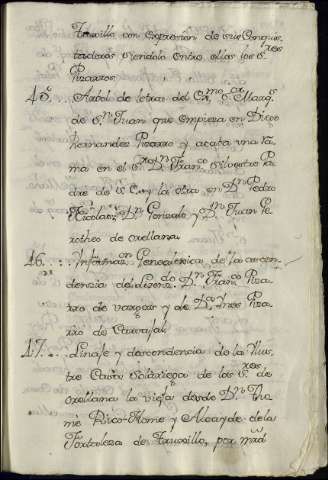 Truxillo con expresion de sus Conquis-
tadores siendolo entre ellos los S.res
Pizarros.
45. Arbol de letras del Ex.mo S.or Marq.s
de S.n Juan que empieza en Diego
Hernandez Pizarro y acaba una ra-
ma en el S.or D.n Fran.co Silvestre Pa-
dre de S.E. y la otra en D.n Pedro
Nicolas, D.n Gonzalo y D.n Juan Do-
rotheo de orellana
46. Informac.on Genealogica de la ascen-
dencia de Lizenz.do D.n Fran.co Piza-
rro de vargas y de D.a Ines Piza-
rro de Carvajal.
47. Linaje y descendencia de la Ilus-
tre Casa Solariega de los S.res de
orellana la vieja desde D.n Tho-
mè Rico-Home y Alcayde de la
Fortaleza de Truxillo, por